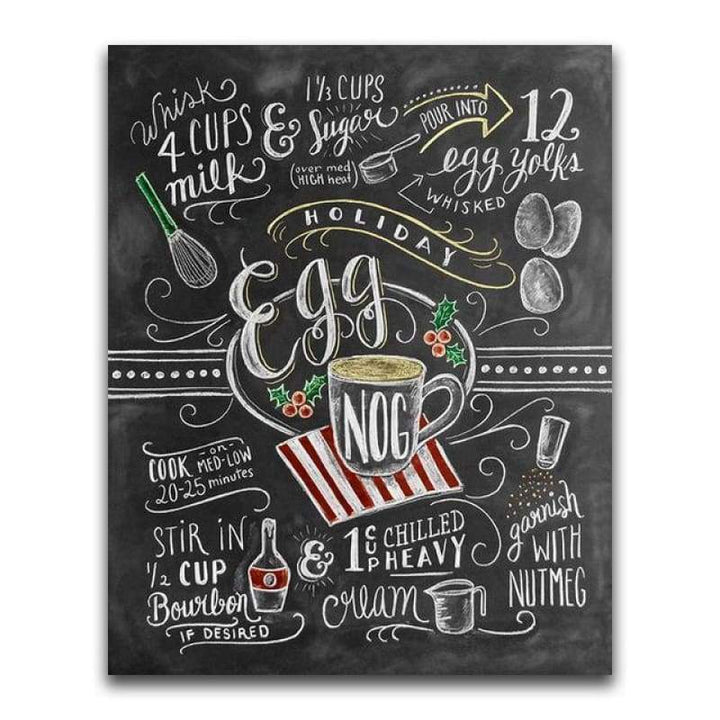 Whisk
4 CUPS
milk
&
1 1/3 CUPS
Sugar
(over med
HIGH heat)
POUR INTO
12
egg yolks
WHISKED
HOLIDAY
Egg
NOG
COOK on MED-LOW
20-25 minutes
STIR IN
1/2 CUP
Bourbon
IF DESIRED
&
1 CUP CHILLED
HEAVY
cream
garnish
WITH
NUTMEG